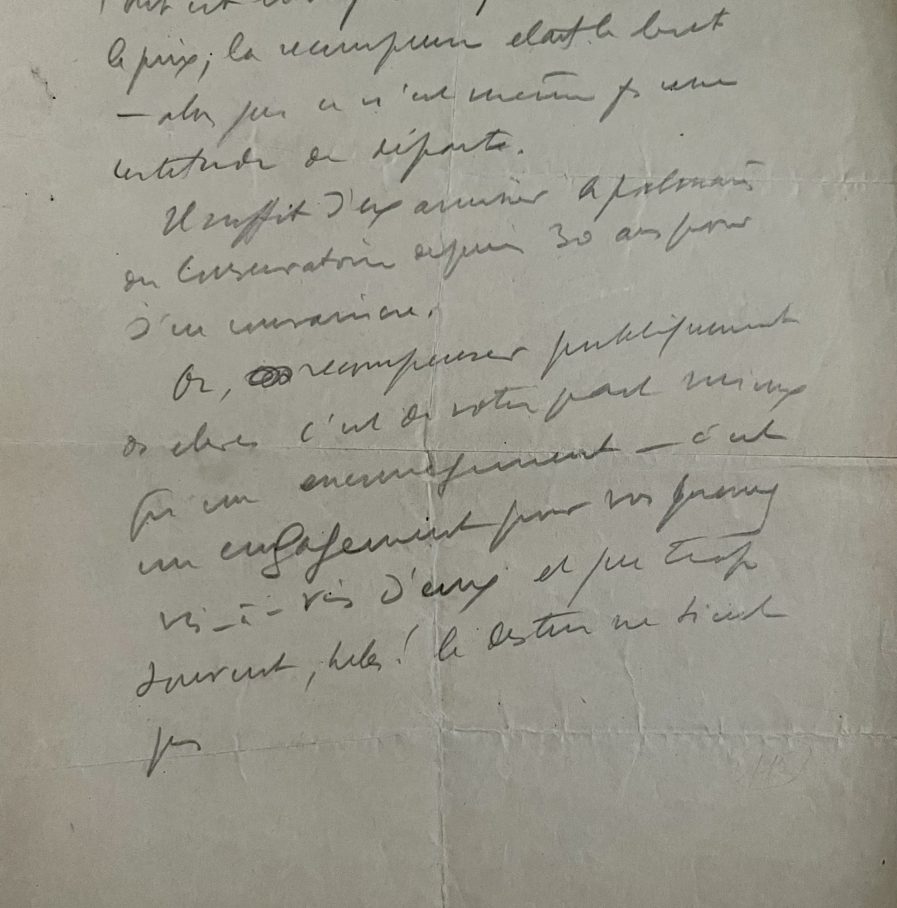 le prix, la récompense étant le but
— alors que ce n'est même pas une
certitude de départ.
Il suffit d'examiner le palmarès
du Conservatoire depuis 30 ans pour
s'en convaincre.
Or, récompenser publiquement
des élèves c'est de votre part mieux
qu'un encouragement — c'est
un engagement pour vos
vis-à-vis d'eux et que trop
souvent, hélas! le destin ne tient
pas